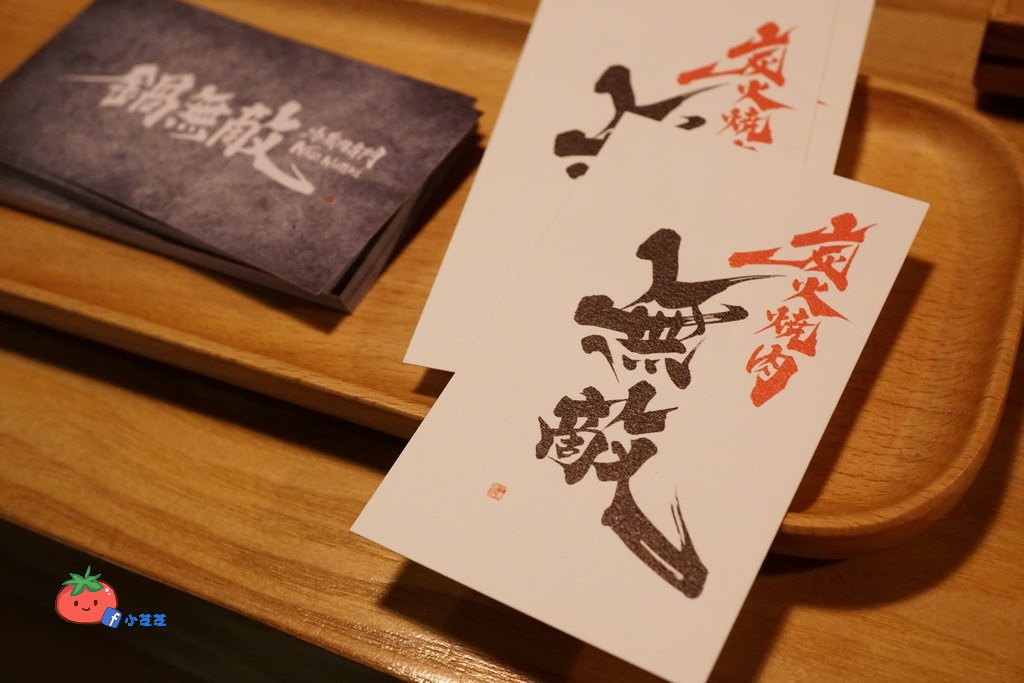 鍋無敵
炭火焼
炭火焼肉
無敵
小芝芝